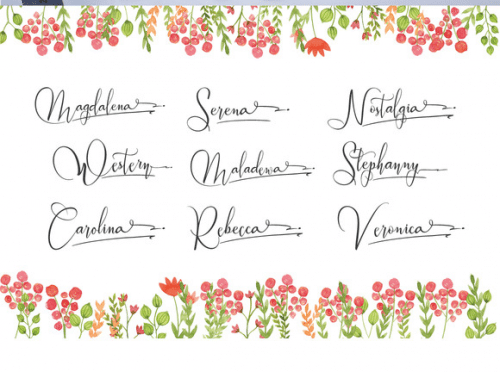 Magdalena Serena Nostalgia
Western Maladewa Stephanny
Carolina Rebecca Veronica